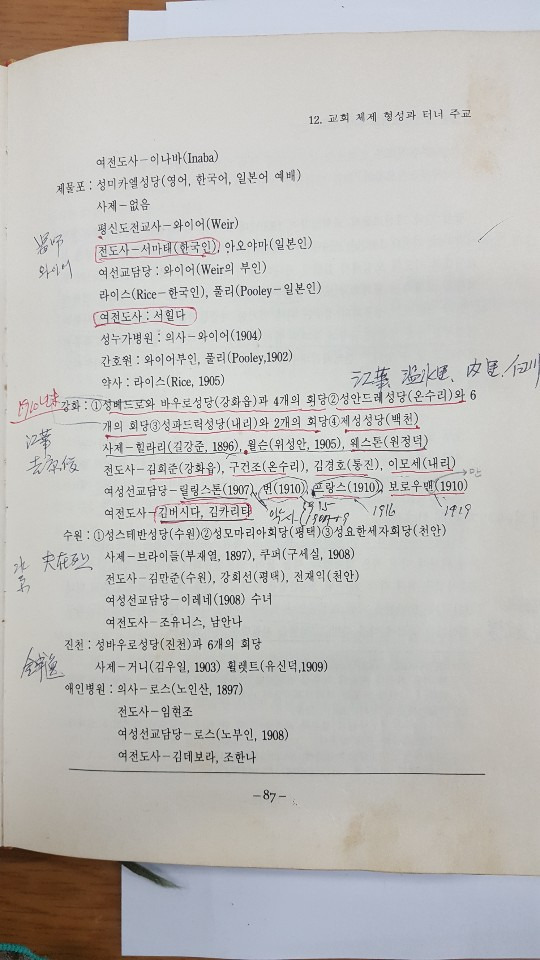 12. 교회 체제 형성과 터너 주교
여전도사－이나바(Inaba)
제물포 : 성미카엘성당(영어, 한국어, 일본어 예배)
사제－없음
평신도전교사－와이어(Weir)
전도사－서마태(한국인), 아오야마(일본인)
와이어
여선교담당 : 와이어(Weir의 부인)
라이스(Rice－한국인), 풀리(Pooley－일본인)
여전도사 : 서힐다
성누가병원 : 의사－와이어(1904)
간호원 : 와이어부인, 풀리(Pooley,1902)
약사 : 라이스(Rice, 1905)
江華, 温水里, 內里,
강화 : ①성베드로와 바우로성당(강화읍)과 4개의 회당②성안드레성당(온수리)와 6
개의 회당③성파드럭성당(내리)와 2개의 회당④제성성당(백천)
江華
사제－힐라리(길강준, 1896), 윌슨(위성안, 1905), 웨스톤(원정덕)
전도사－김희준(강화읍), 구건조(온수리), 김경호(통진), 이모세(내리)
여성선교담당－릴링스톤(1907), 번(1910), 프랑스(1910), 보로우맨(1910)
1915
1916
1919
여전도사－김버시다, 김카리타
수원 : ①성스테반성당(수원)②성모마리아회당(평택)③성요한세자회당(천안)
사제－브라이들(부재열, 1897), 쿠퍼(구세실, 1908)
전도사－김만준(수원), 강희선(평택), 전재익(천안)
여성선교담당－이레네(1908) 수녀
여전도사－조유니스, 남안나
진천 : 성바우로성당(진천)과 6개의 회당
사제－거니(김우일, 1903) 휠렛트(유신덕,1909)
애인병원 : 의사－로스(노인산, 1897)
전도사－임현조
여성선교담당－로스(노부인, 1908)
여전도사－김데보라, 조한나
－87－